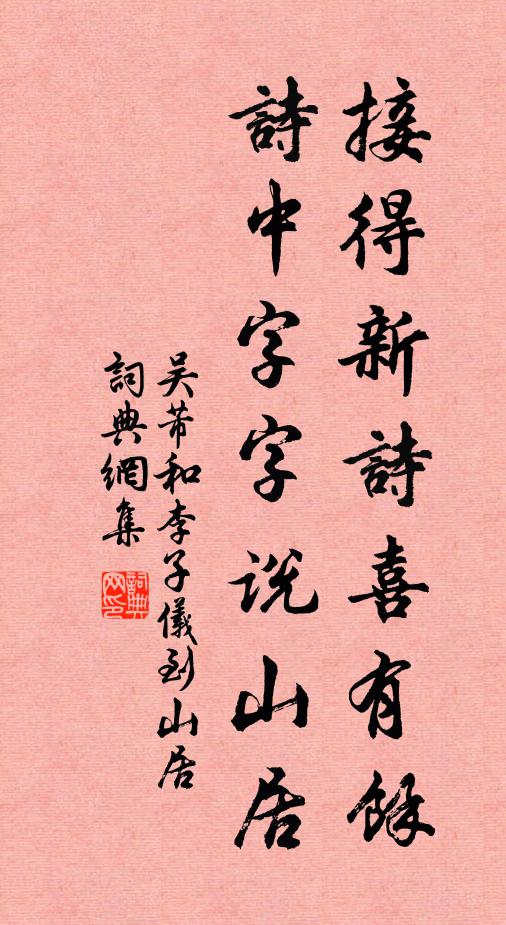 接得新詩喜有餘
詩中字字说山居
吴芾和李子儀到山居
詞典網集
詞典网印